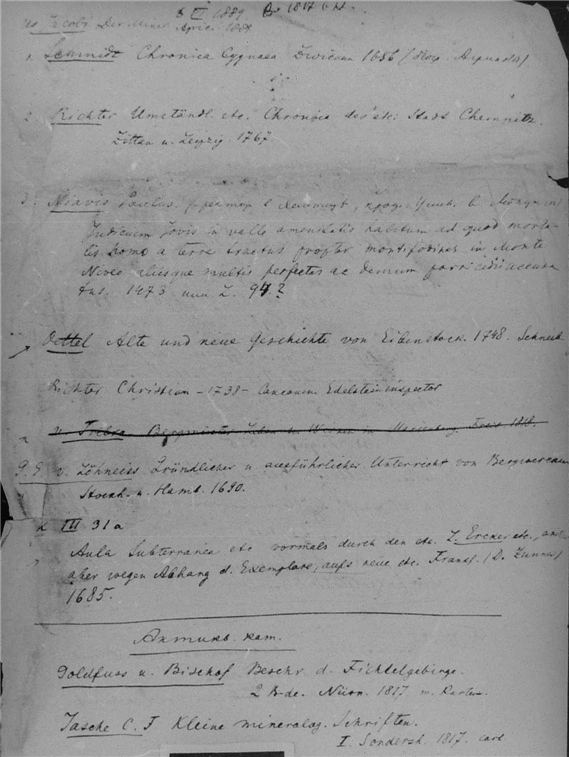 1889 1817
1. Schmidt Chronica Cygnaea Zwiccau 1656
2. Richter Umständl. etc. Chronica der etc. Stadt Chemnitz.
Zittau u. Leipzig. 1767.
3. Niavis Paulus.
Judicium Jovis in valle amenitatis habitum ad quod morta
lis homo a terra tractus propter montifodinas in Monte
Niveo aliisque multis perfectas ac demum parricidii accusa
tus. 1473 94?
Oettel Alte und neue Geschichte von Eibenstock. 1748. Schneeb
Richter Christian – 1738 – Edelsteininspector
v. Trebra Bergmeister Leben in Marienberg. 1818.
v. Löhneiss Gründlicher u. ausführlicher Unterricht von Bergwercken
Stockh. u. Hamb. 1690.
III 31a
Aula Subterranea etc vormals durch den etc. L. Ercker, etc.,
aber wegen Abgang d. Exemplare, aufs neue etc. Franff. (D. Zunner)
1685.
Goldfuss u. Bischof Beschr. d. Fichtelgebirge.
2 Bde. Nürn. 1817 m. Karte.
Tasche C. F Kleine mineralog. Schriften.
I. Sondersh. 1817.